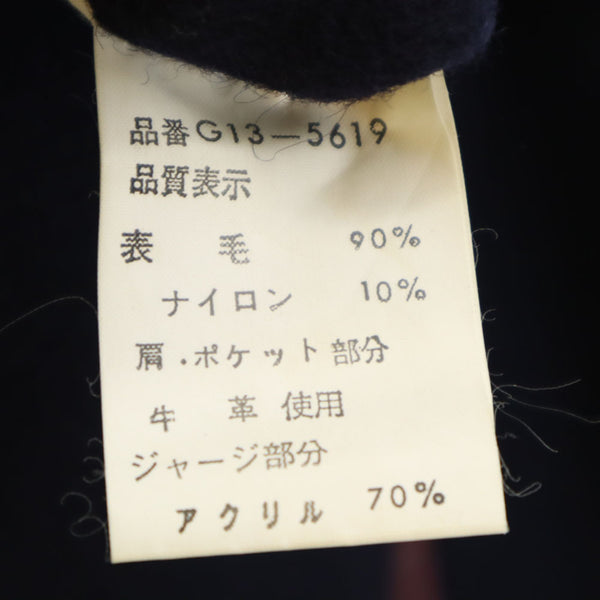 品番G13-5619
品質表示
表 毛 90%
ナイロン 10%
肩・ポケット部分
牛 革 使用
ジャージ部分
アクリル 70%